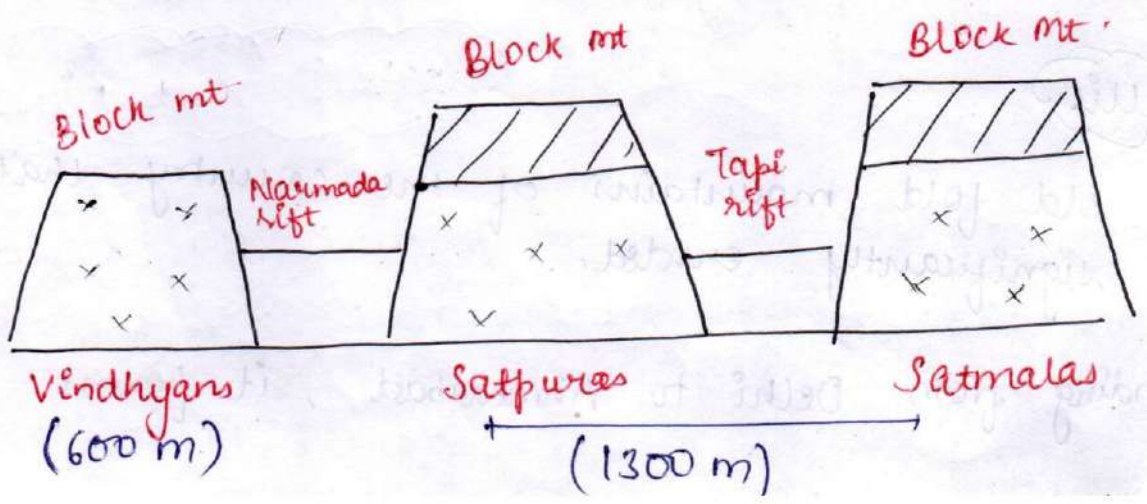 Block mt
Block mt
Block mt.
Narmada
rift
Tapi
rift
Vindhyans
(600 m)
Satpuras
Satmalas
(1300 m)